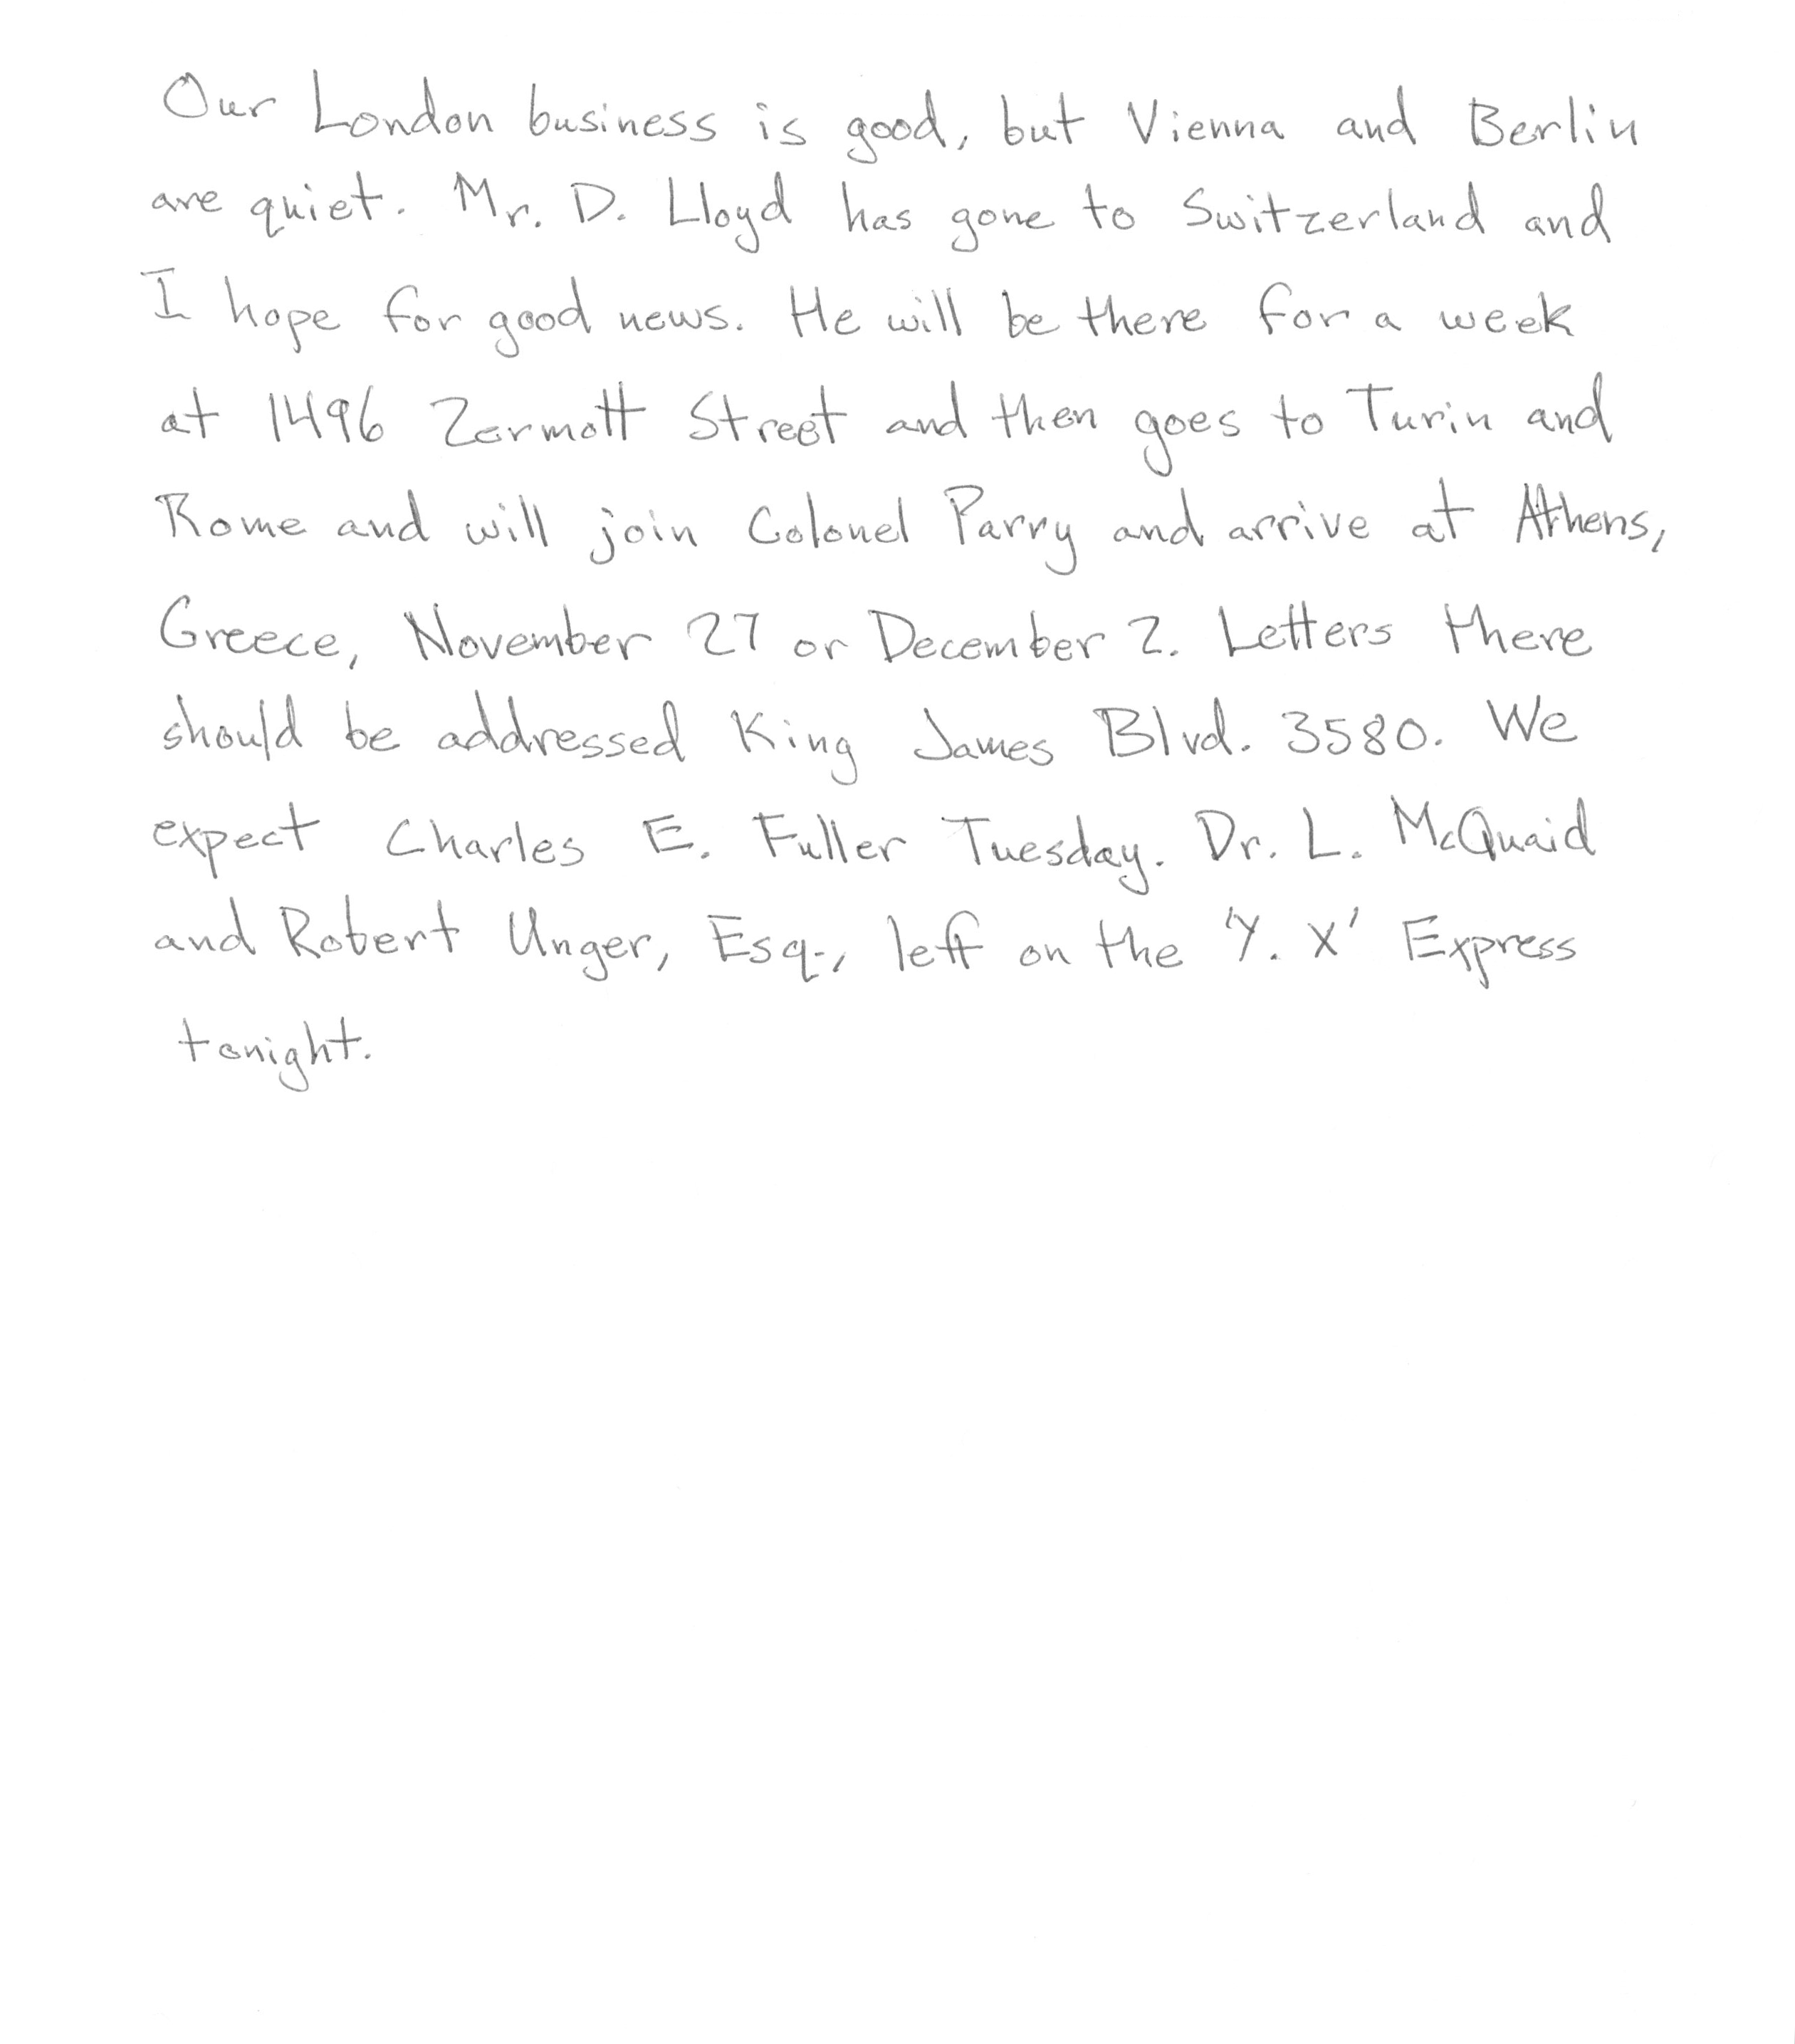 Our London business is good, but Vienna and Berlin
are quiet. Mr. D. Lloyd has gone to Switzerland and
I hope for good news. He will be there for a week
at 1496 Zermott Street and then goes to Turin and
Rome and will join Colonel Parry and arrive at Athens,
Greece, November 27 or December 2. Letters there
should be addressed King James Blvd. 3580. We
expect Charles E. Fuller Tuesday. Dr. L. McQuaid
and Robert Unger, Esq., left on the 'Y. X' Express
tonight.